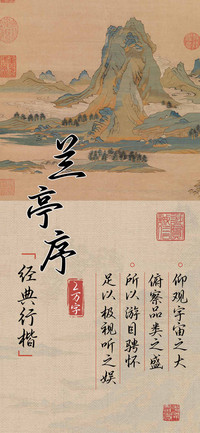 兰亭序
2万字
「经典行楷」
仰观宇宙之大
俯察品类之盛
所以游目骋怀
足以极视听之娱